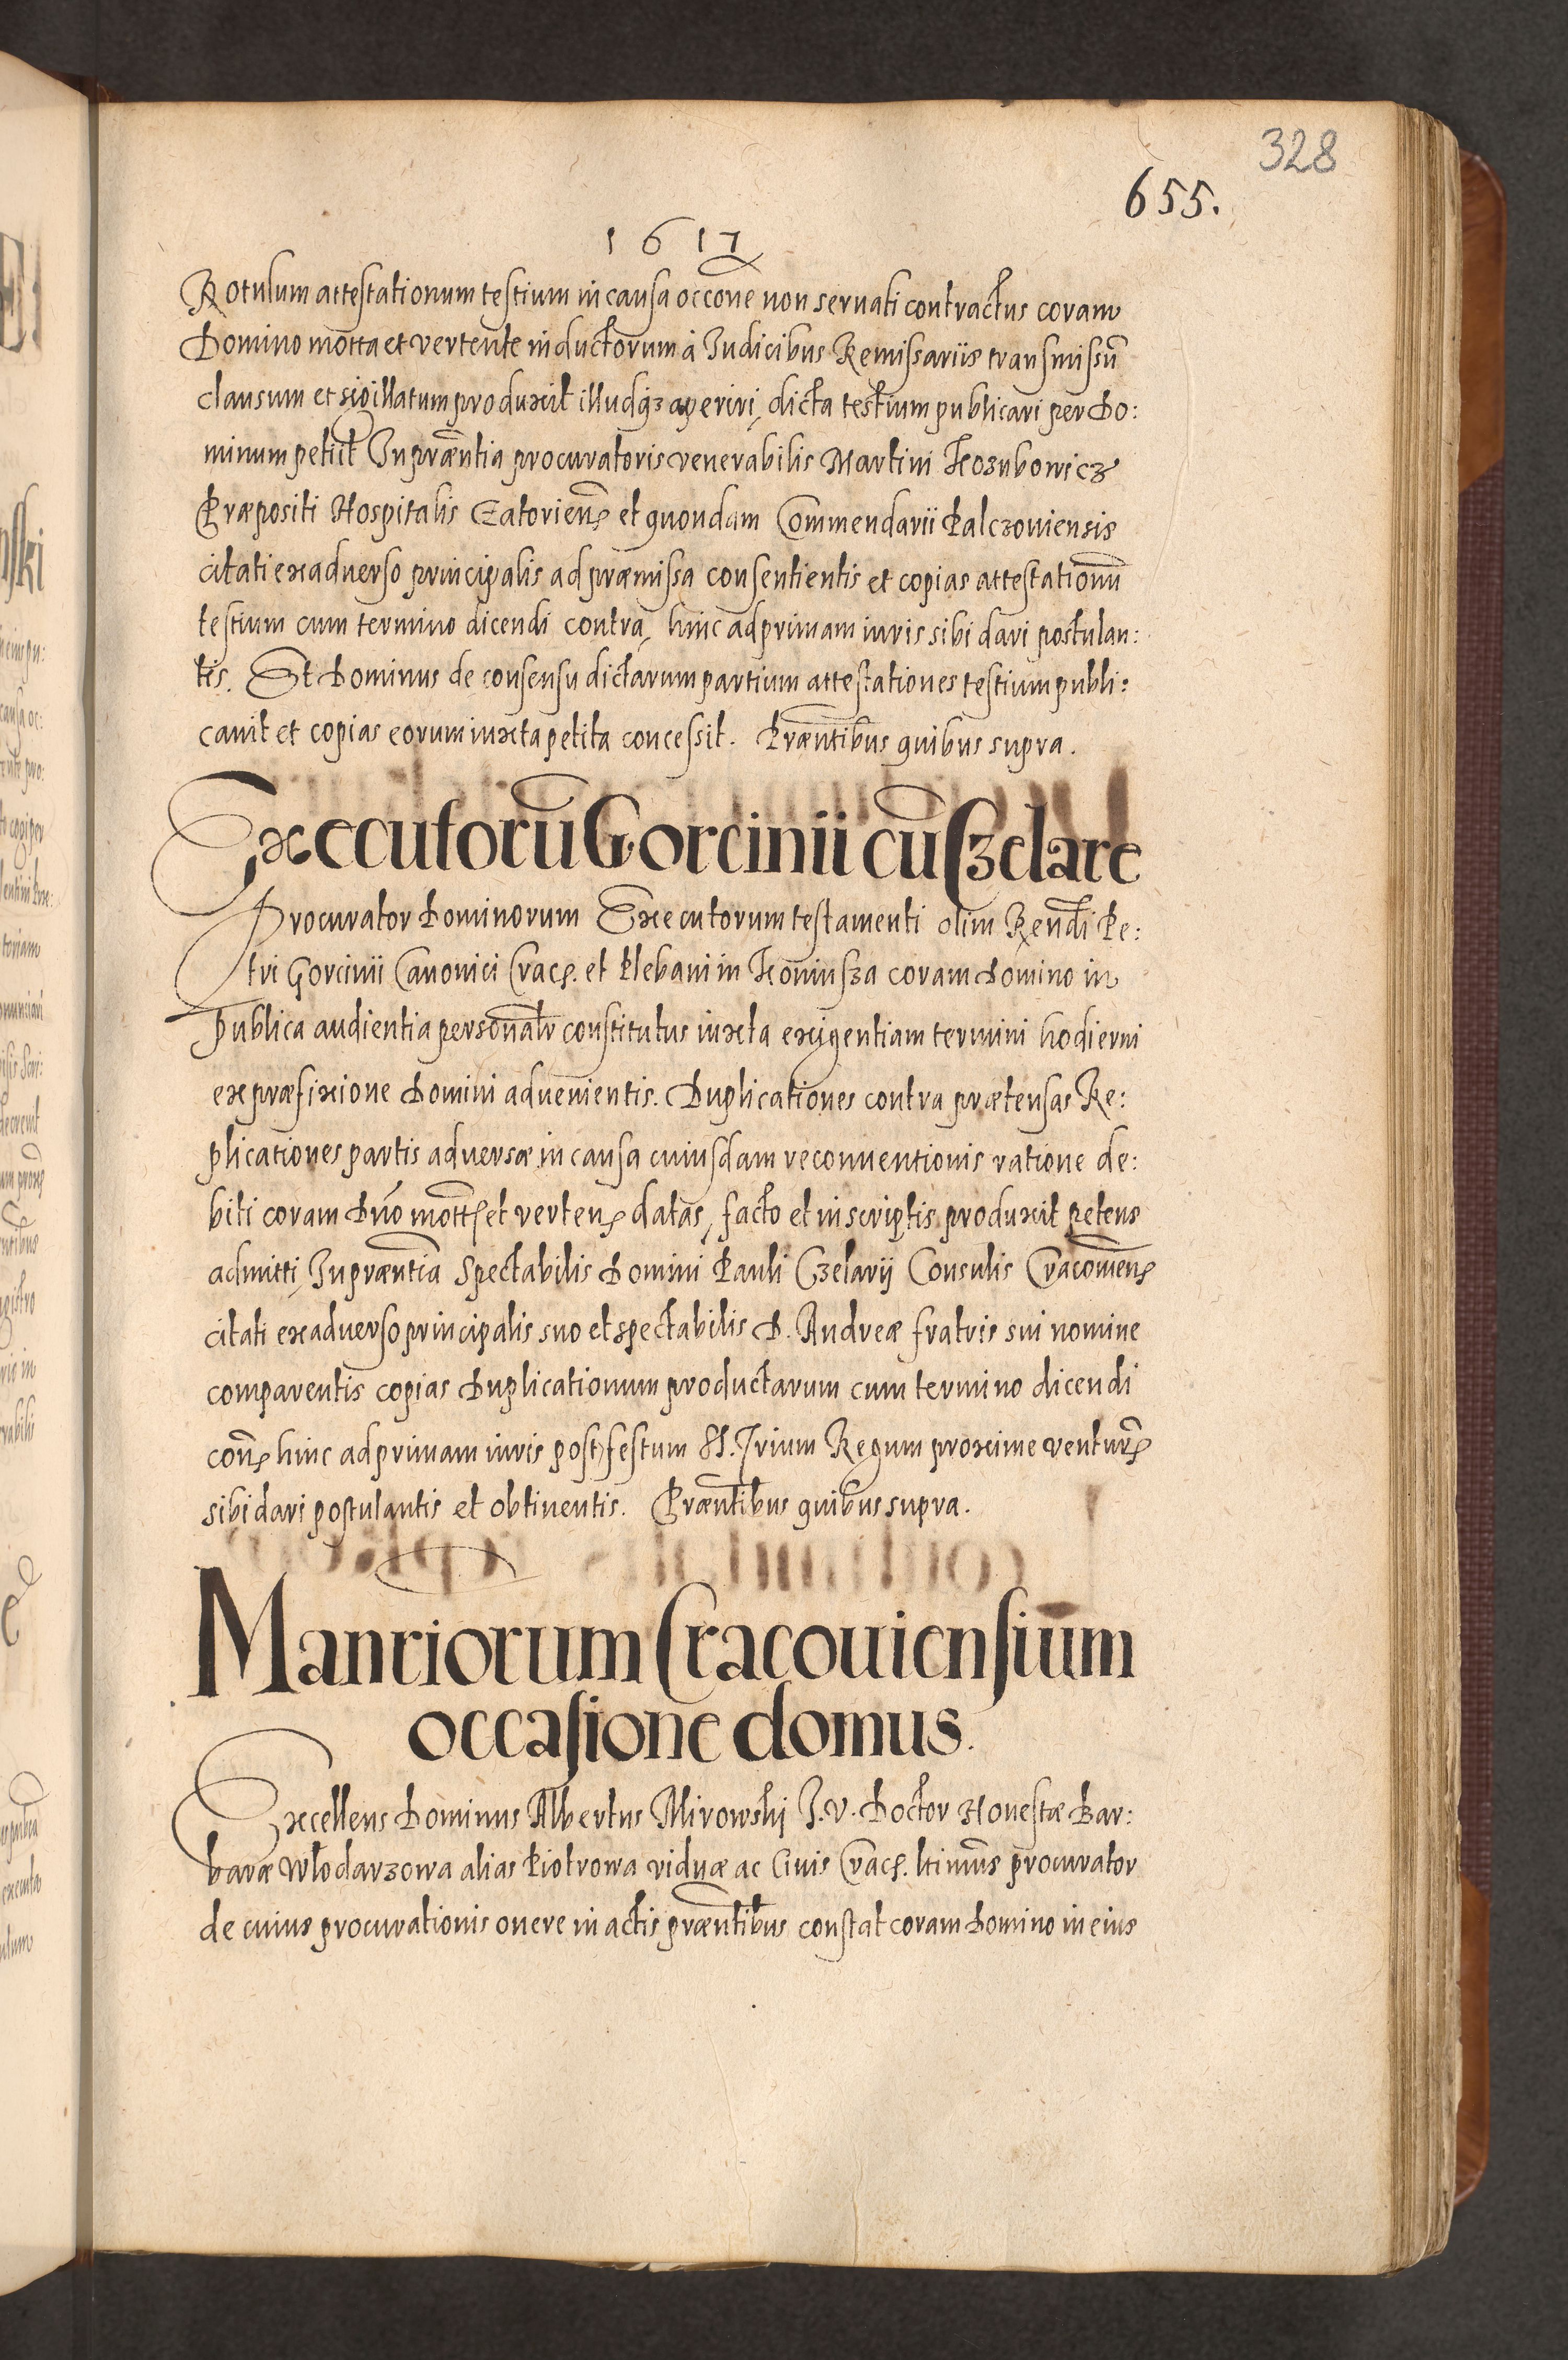 328
655.
1617
Rotulum attestationum testium in causa occone non servati contractus coram
Domino mōtta et vertente inductorum à Iudicibus Remissariis transmissū
clausum et sigillatum produxit illudq3 aperiri, dicta testium publicari per Do:
minum petiit In præntia procuratoris venerabilis Martini Kozubowicz
Præpositi Hospitalis Zatorien̄ et quondam Commendarii Palczoviensis
citati ex adverso principalis ad præmissa consentientis et copias attestationū
testium cum termino dicendi contra, hinc ad primam iuris sibi dari postulan:
tis. Et Dominus de consensu dictarum partium attestationes testium publi:
cavit et copias eorum iuxta petita concessit. Præntibus quibus supra.
Executorū Gorcinii cū Szelare
Procurator Dominorum Executorum testamenti olim Rendi Pe:
tri Gorcinii Canonici Crac. et Plebani in Koniusza coram Domino in
publica audientia personalr constitutus iuxta exigentiam termini hodierni
ex præfixione Domini advenientis. Duplicationes contra prætensas Re:
plicationes partis adversæ in causa cuiusdam reconventionis ratione de:
biti coram Dño mott et verten datas, facto et in scriptis produxit petens
admitti, In præntia Spectabilis Domini Pauli Czelarij Consulis Cracovien
citati ex adverso principalis suo et spectabilis D. Andreæ fratris sui nomine
comparentis copias Duplicationum productarum cum termino dicendi
con hinc ad primam iuris post festum SS. Trium Regum proxime ventur
sibi dari postulantis et obtinentis. Præntibus quibus supra.
Mansriorum Cracouiensium
occasione domus.
Excellens Dominus Albertus Mirowski I. V. Doctor Honestæ Bar:
baræ Włodarzowa alias Piotrowa viduæ ac Civis Crac. ltimūs procurator
de cuius procurationis onere in actis præntibus constat coram Domino in eius